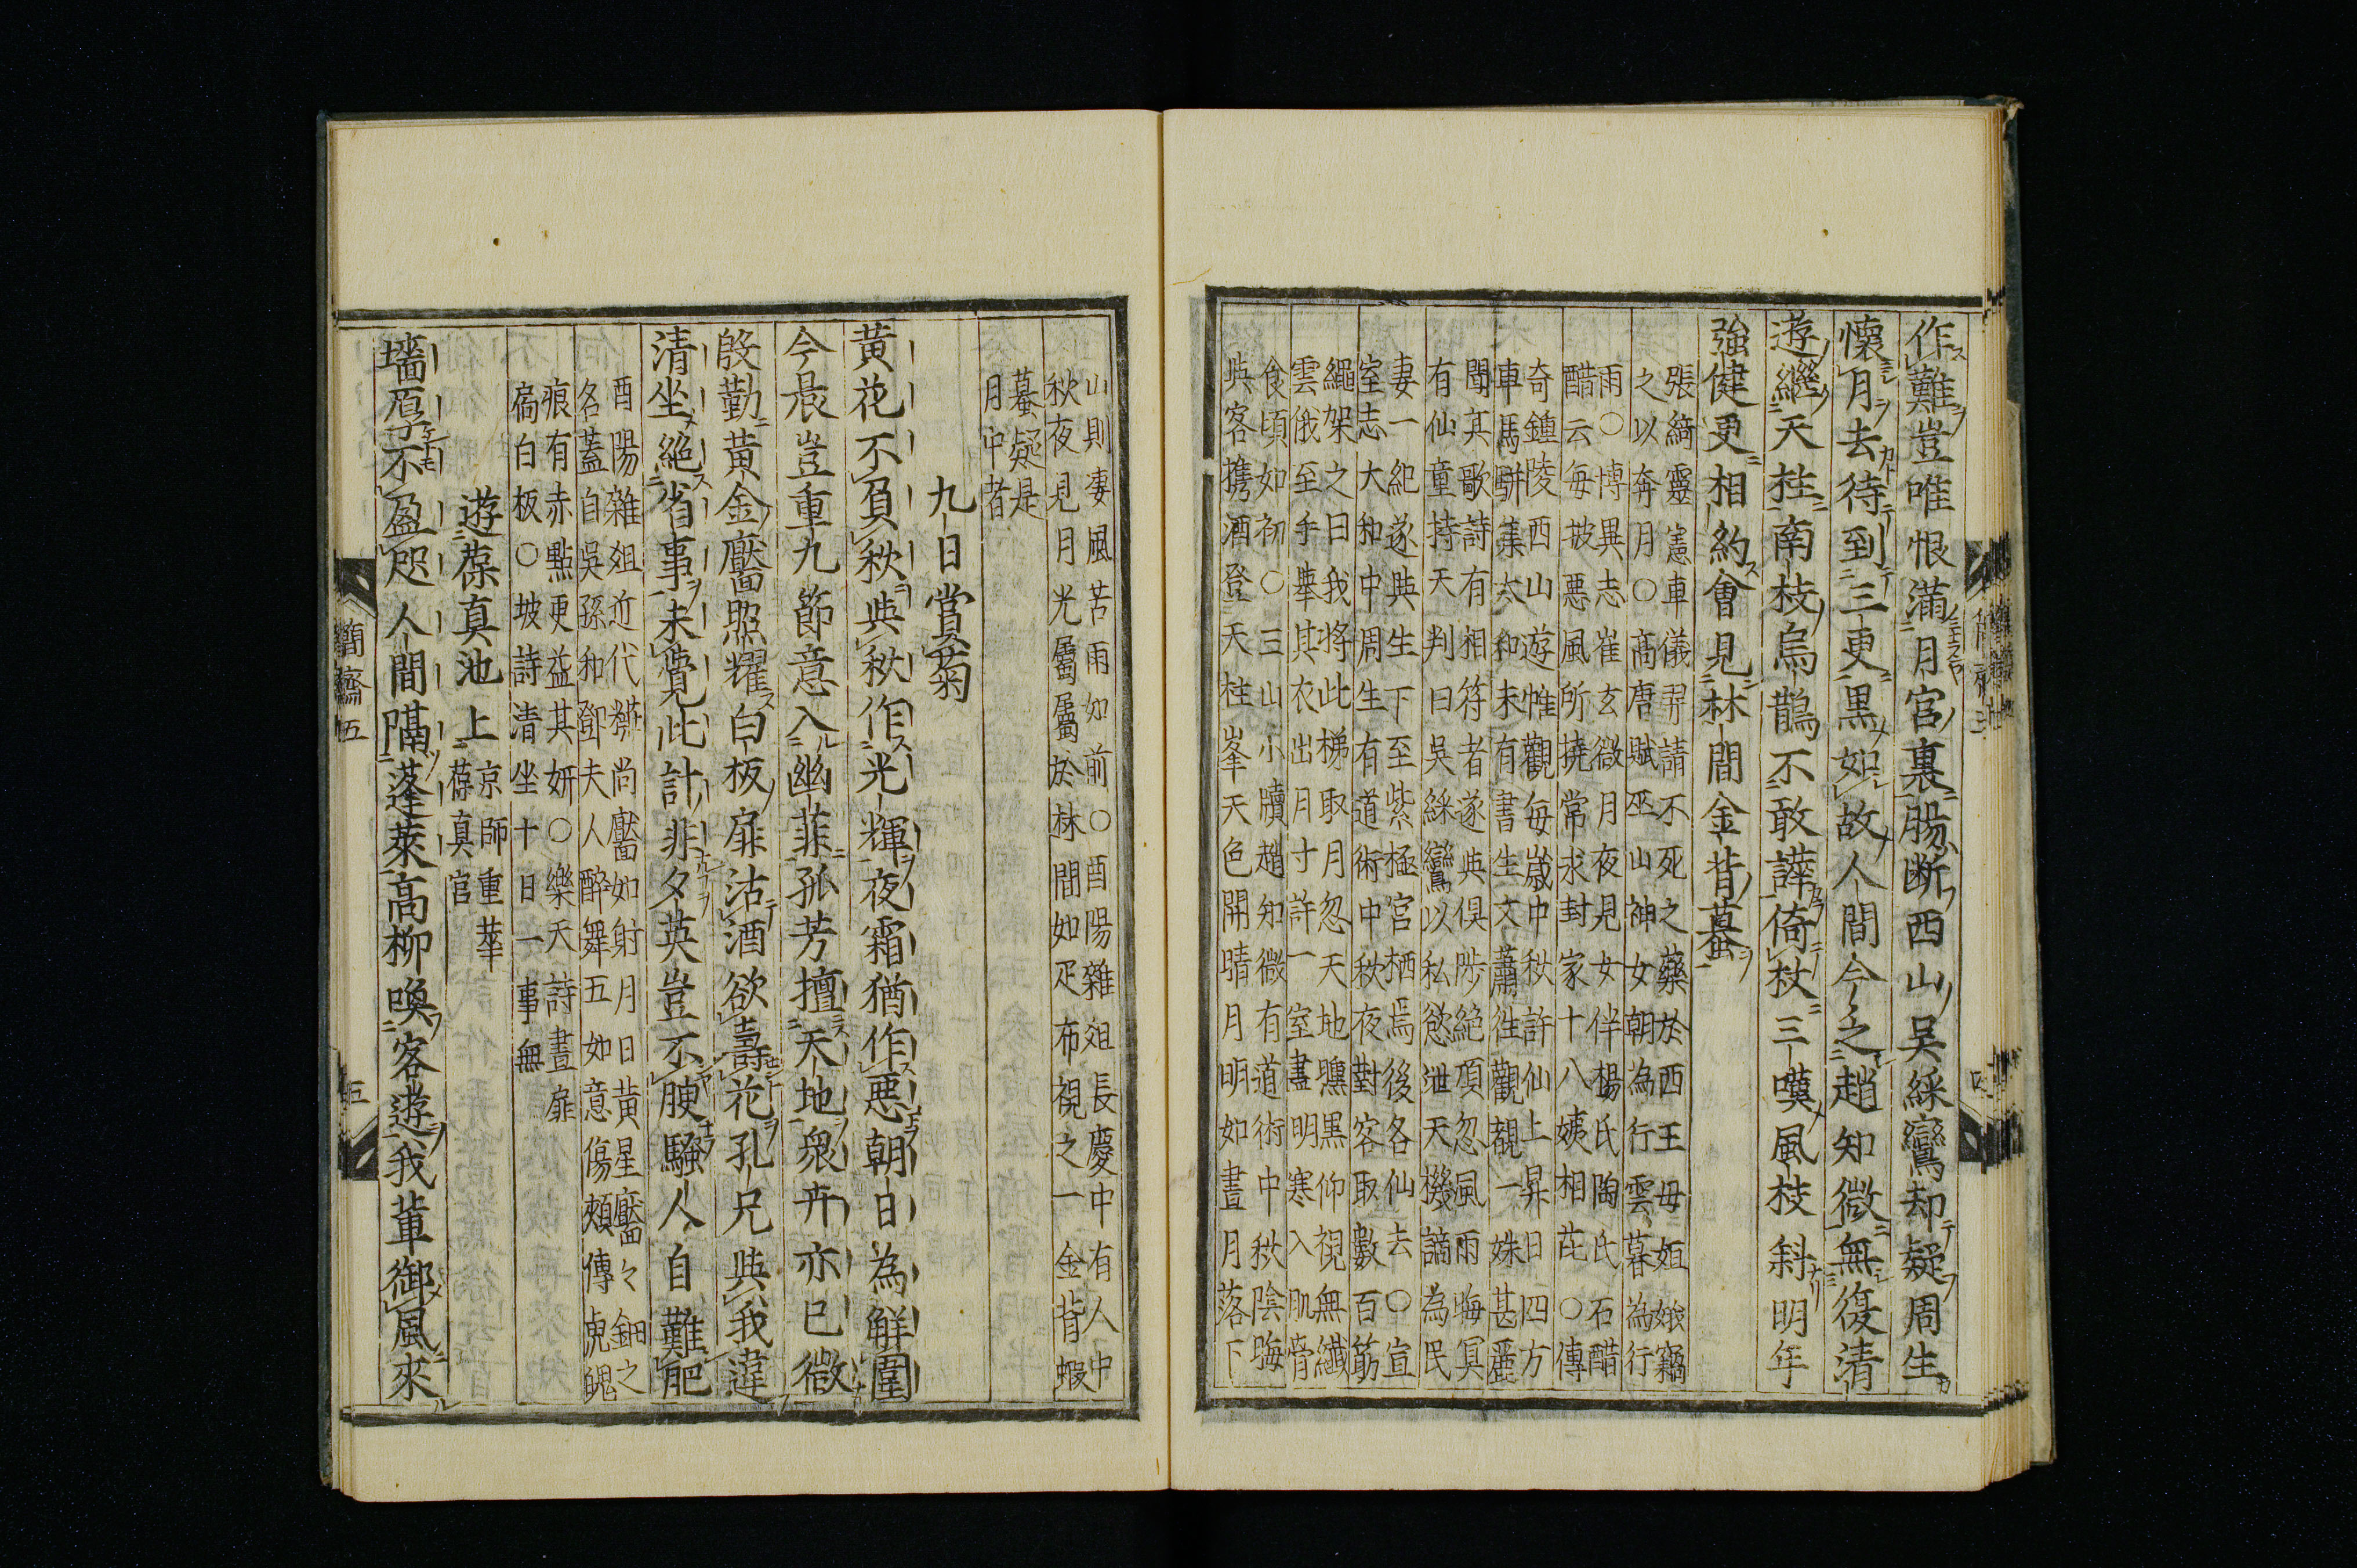 作難豈唯恨滿月宮裏腸断西山吴綵鸞却疑周生
懷月去待到三更黒如故人間今之趙知微無復清
遊繼天柱南枝烏鵲不敢譁倚杖三嘆風枝斜明年
強健更相約會見林間金背蟇
張綺靈憲車儀羿請不死之藥於西王母姮娥竊
之以奔月○高唐賦巫山神女朝為行雲暮為行
雨○博異志崔玄微月夜見女伴楊氏陶氏石醋
醋云每披惡風所撓常求封家十八姨相芘○傳
奇鍾陵西山遊惟觀每歳中秋許仙上昇日四方
車馬駢集太和未有書生文蕭徃觀覩一姝甚麗
聞其歌詩有相符者遂與俱陟絶頂忽風雨晦冥
有仙童持天判曰吴綵鸞以私慾泄天機謫為民
妻一紀遂與生下至紫極宮栖焉後各仙去○宣
室志大和中周生有道術中秋夜對客取數百筯
繩架之曰我將此梯取月忽天地曛黒仰視無纖
雲俄至手舉其衣出月寸許一室盡明寒入肌骨
食頃如初○三山小牘趙知微有道術中秋陰晦
與客携酒登天柱峯天色開晴月明如晝月落下
山則凄風苦雨如前○酉陽雜俎長慶中有人中
秋夜見月光屬屬於林間如疋布視之一金背蝦
蟇疑是
月中者
九日賞菊
黄花不負秋與秋作光輝夜霜猶作惡朝日為解圍
今晨豈重九節意入幽菲孤芳擅天地衆卉亦已微
殷勤黄金靨照耀白板扉沽酒欲壽花孔兄與我違
清坐絶省事未覺此計非夕英豈不腴騷人自難肥
酉陽雜俎近代糚尚靨如射月日黄星靨々鈿之
名蓋自吳孫和鄧夫人醉舞五如意傷頰傳虎魄
痕有赤點更益其妍○樂天詩晝扉
扃白板○坡詩清坐十日一事無
遊葆真池上
京師重華
葆真宮
墻厚不盈咫人間隔蓬萊高柳喚客遊我輩御風來
簡齋五
五